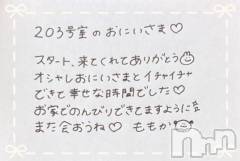 203号室のおにいさま♡
スタート、来てくれてありがとう
オシャレおにいさまとイチャイチャ
できて幸せな時間でした♡
お家でのんびりできてますように
また会おうね♡ ももか